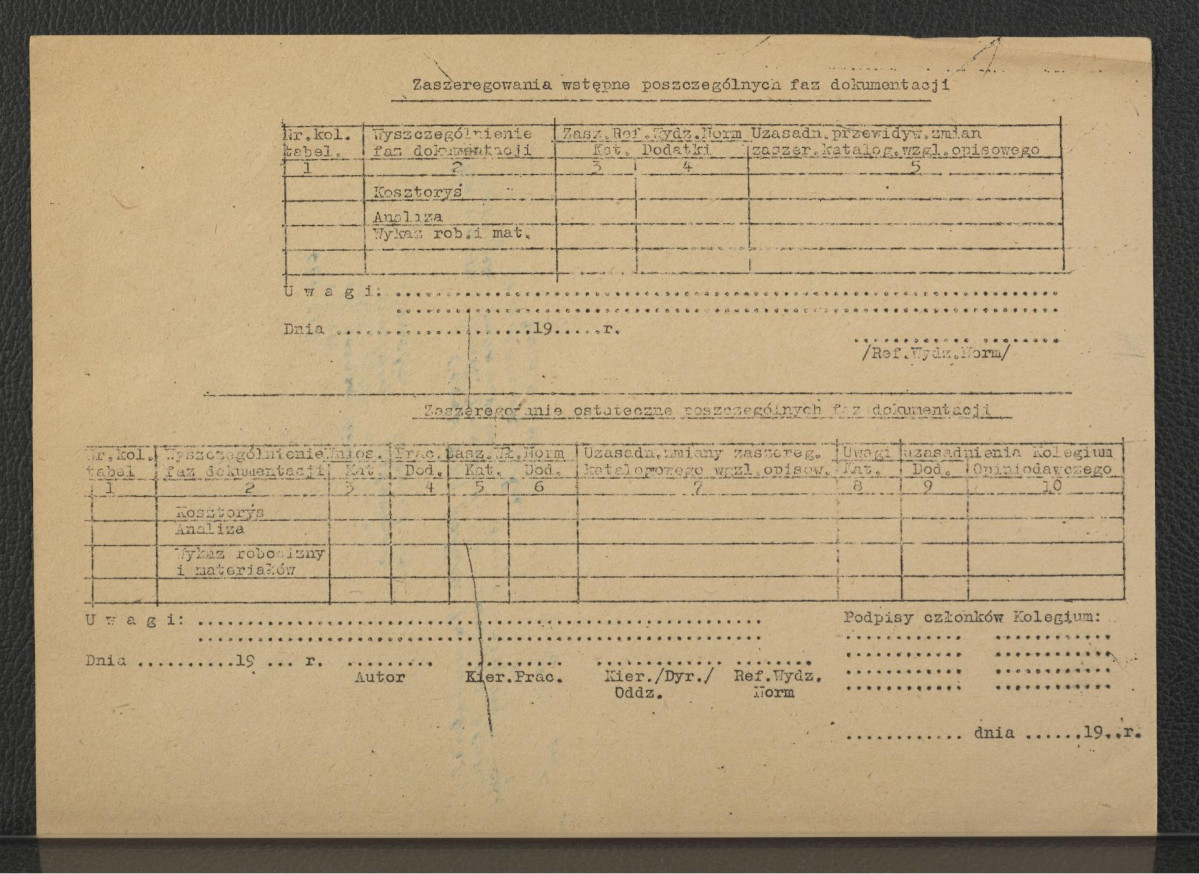 Zaszeregowania wstępne poszczególnych faz dokumentacji
Nr.kol. Wyszczególnienie Zasz.Ref.Wydz.Norm Uzasadn.przewidyw.zmian
tabel. faz dokumentacji Kat. Dodatki zaszer.katalog.wzgl.opisowego
1 2 3 4 5
Kosztoryś
Analiza
Wykaz rob.i mat.
U w a g i: ..........................................................
..........................................................
Dnia .....................19.....r.
............ ........
/Ref.Wydz.Norm/
Zaszeregowanie ostateczne poszczególnych faz dokumentacji
Nr.kol. Wyszczególnienie Wnios. Prac. Zasz.Wł.Norm Uzasadn.zmiany zaszereg. Uwagi uzasadnienia Kolegium
tabel faz dokumentacji Kat. Dod. Kat. Dod. katalogowego wgzl.opisow. Kat. Dod. Opiniodawczego
1 2 3 4 5 6 7 8 9 10
Kosztorys
Analiza
Wykaz robocizny
i materiałów
U w a g i: .......................................................... Podpisy członków Kolegium:
..........................................................
Dnia ..........19 ... r. ......... .......... ............. ........
Autor Kier.Prac. Kier./Dyr./ Ref.Wydz.
Oddz. Norm
............ dnia ......19..r.